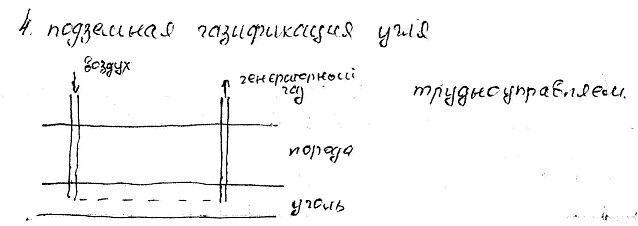 4. подземная газификация угля
воздух
генераторный
газ
трудноуправляем.
порода
уголь